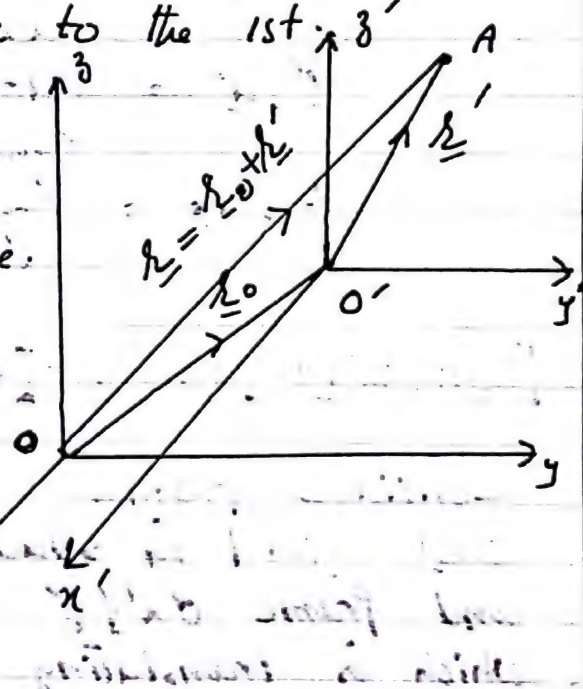 to the 1st.
z'
A
z
r'
r = r₀ + r'
e.
r₀
O'
y'
O
y
x'